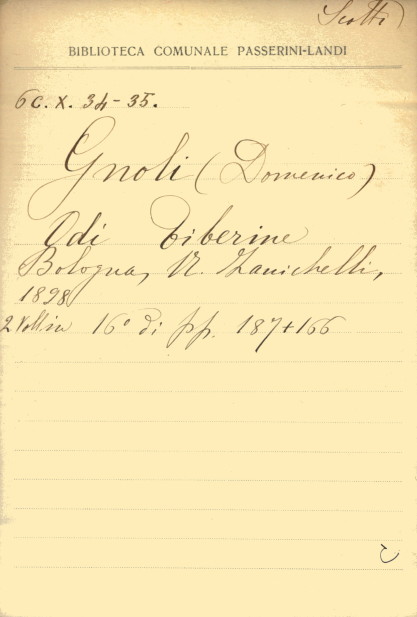 Scotti
BIBLIOTECA COMUNALE PASSERINI-LANDI
6C. X. 34-35.
Gnoli (Domenico)
Odi Tiberine
Bologna, N. Zanichelli,
1898
2 Voll in 16° di pp. 187+166